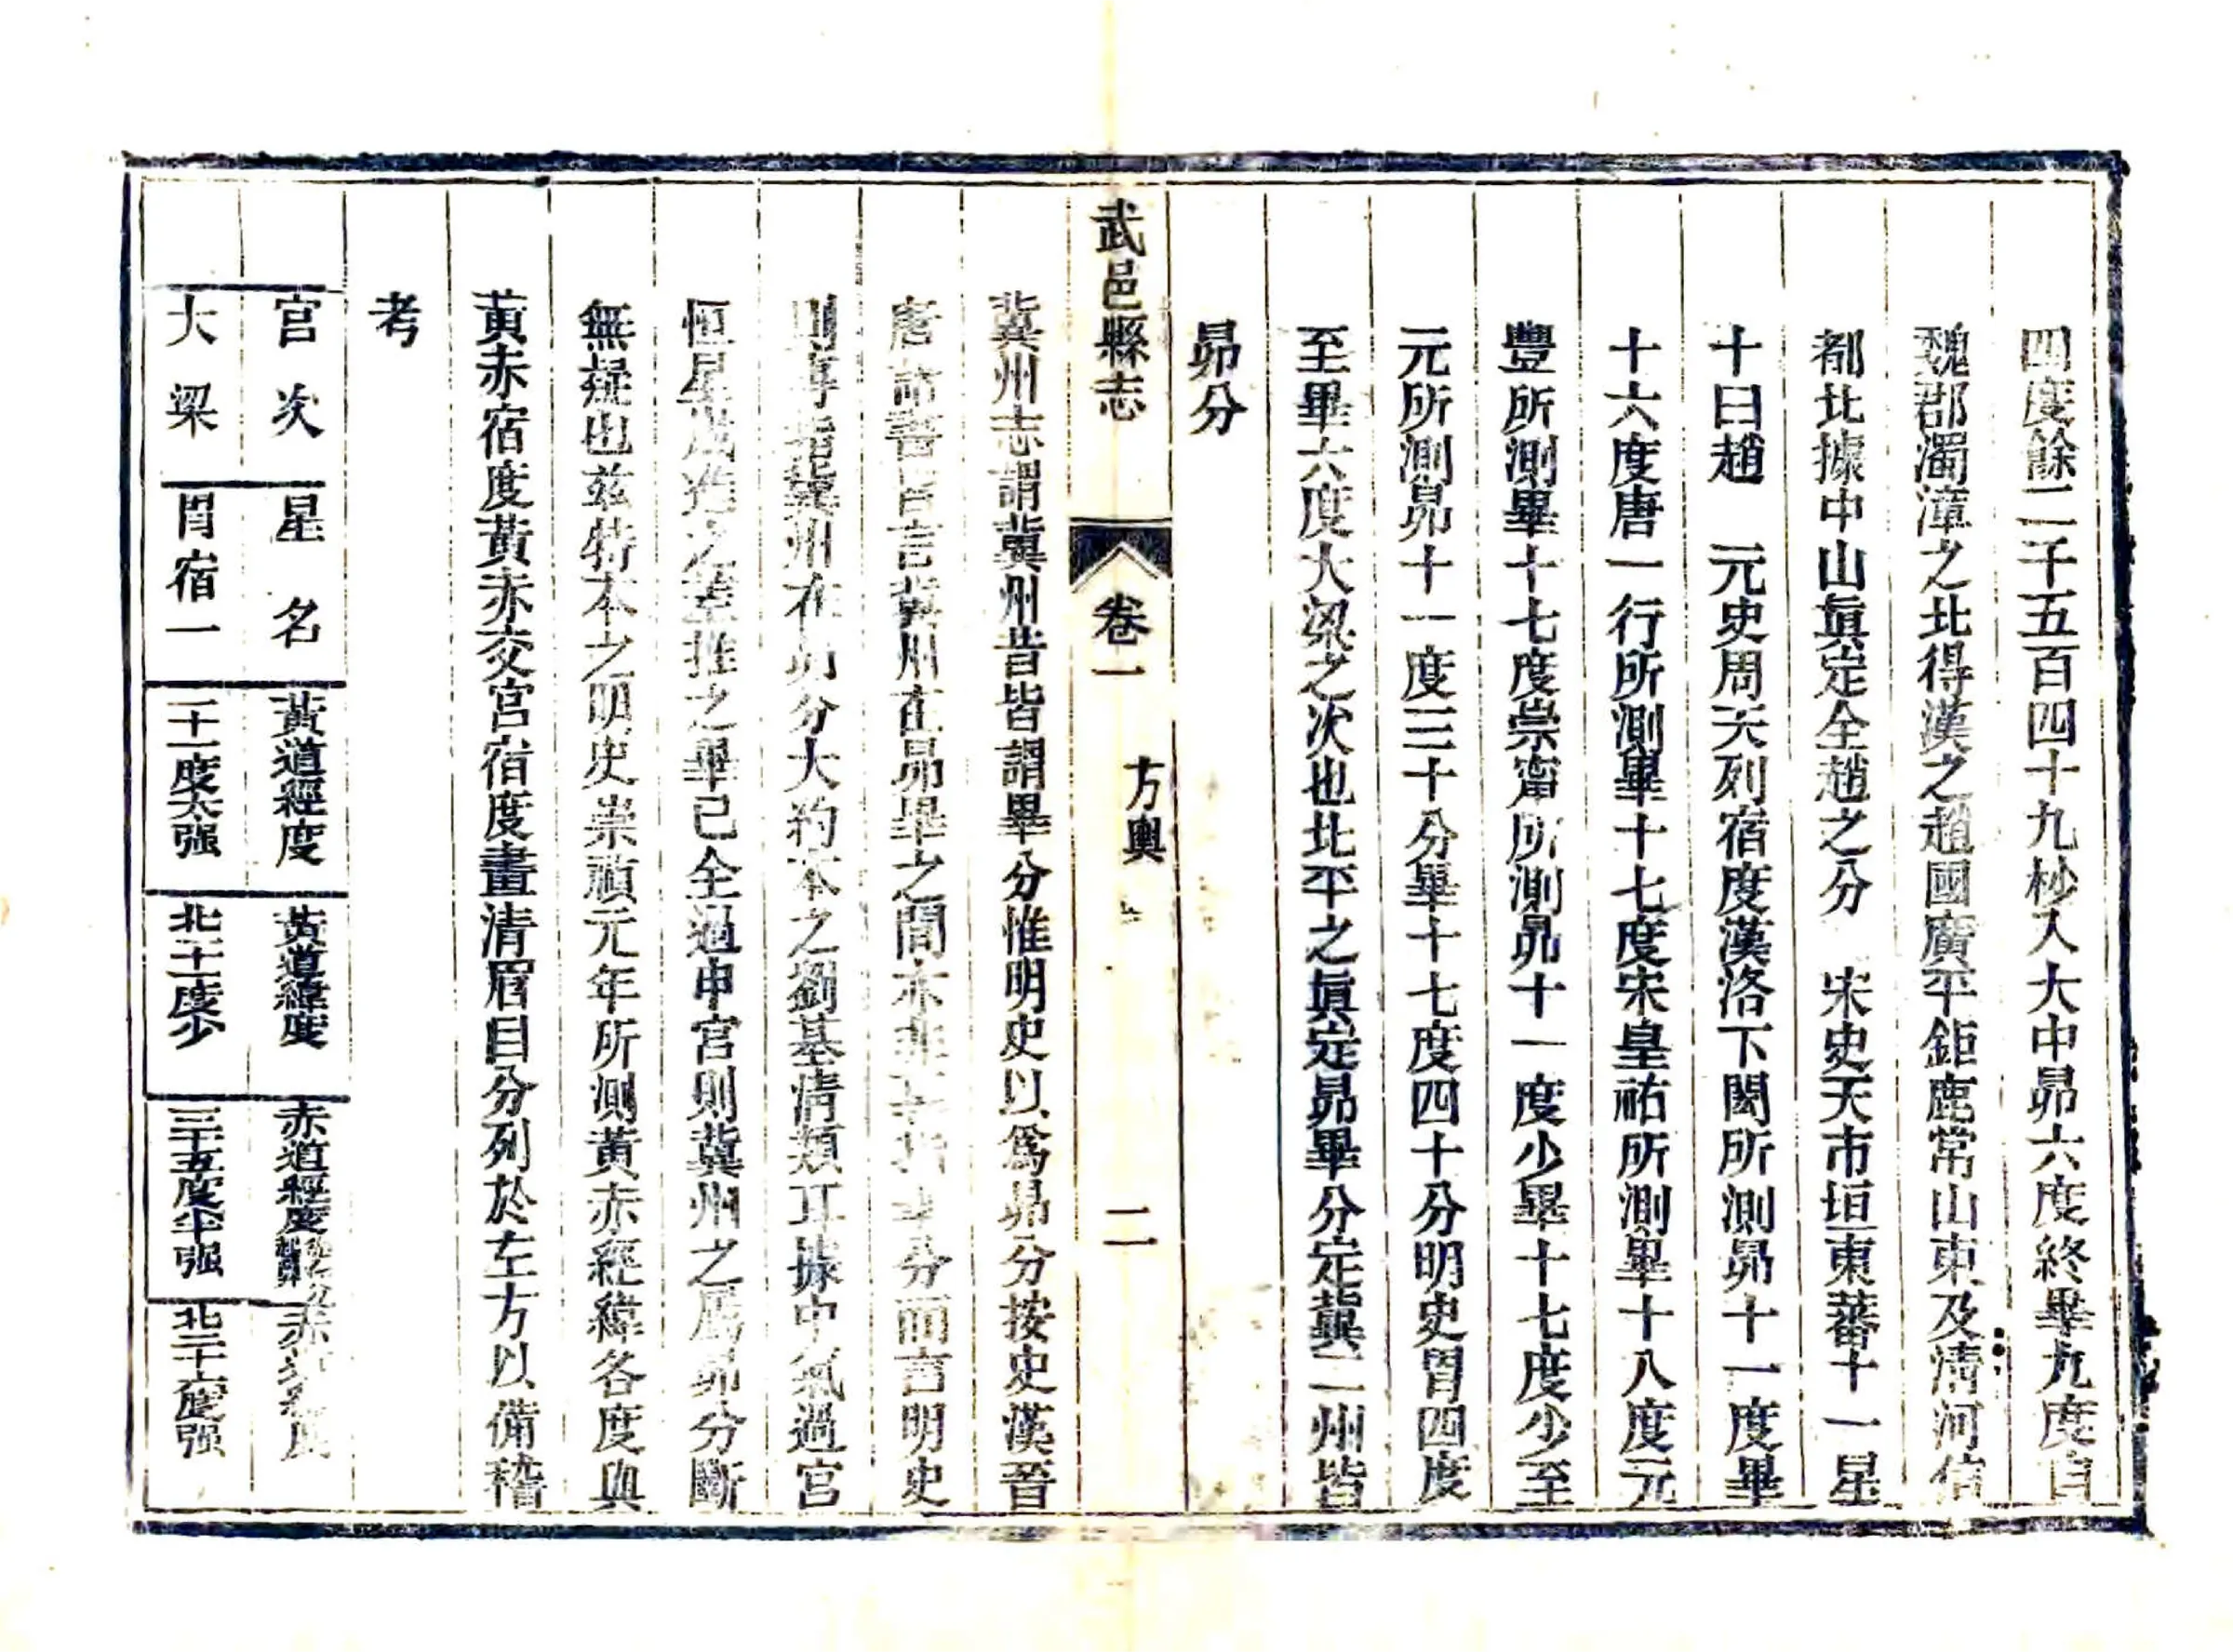 四度餘二千五百四十九杪入大中昴六度終畢九度自
魏郡濁漳之北得漢之趙國廣平鉅鹿常山東及清河信
都北據中山眞定全趙之分　宋史天市垣東蕃十一星
十曰趙　元史周天列宿度漢洛下閎所測昴十一度畢
十六度唐一行所測畢十七度宋皇祐所測畢十八度元
豐所測畢十七度崇甯所測昴十一度少畢十七度少至
元所測昴十一度三十分畢十七度四十分明史胃四度
至畢六度大梁之次也北平之眞定昴畢分定冀二州皆
昴分
武邑縣志　卷一　方輿　二
冀州志謂冀州昔皆謂畢分惟明史以為昴分按史漢晉
唐諸書皆言冀州在昴畢之間亦非專指畢分而言明史
則專指冀州在昴分大約本之劉基清類耳據中氣過宮
恒星歲進之差推之畢已全過申宮則冀州之屬昴分斷
無疑也茲特本之明史崇禎元年所測黃赤經緯各度與
黃赤宿度黃赤交宮宿度畫清眉目分列於左方以備稽
考
宮次　星名　黃道經度　黃道緯度　赤道經度
大梁　胃宿一　十二度太强　北十一度少　三十五度半强　北二十六度强